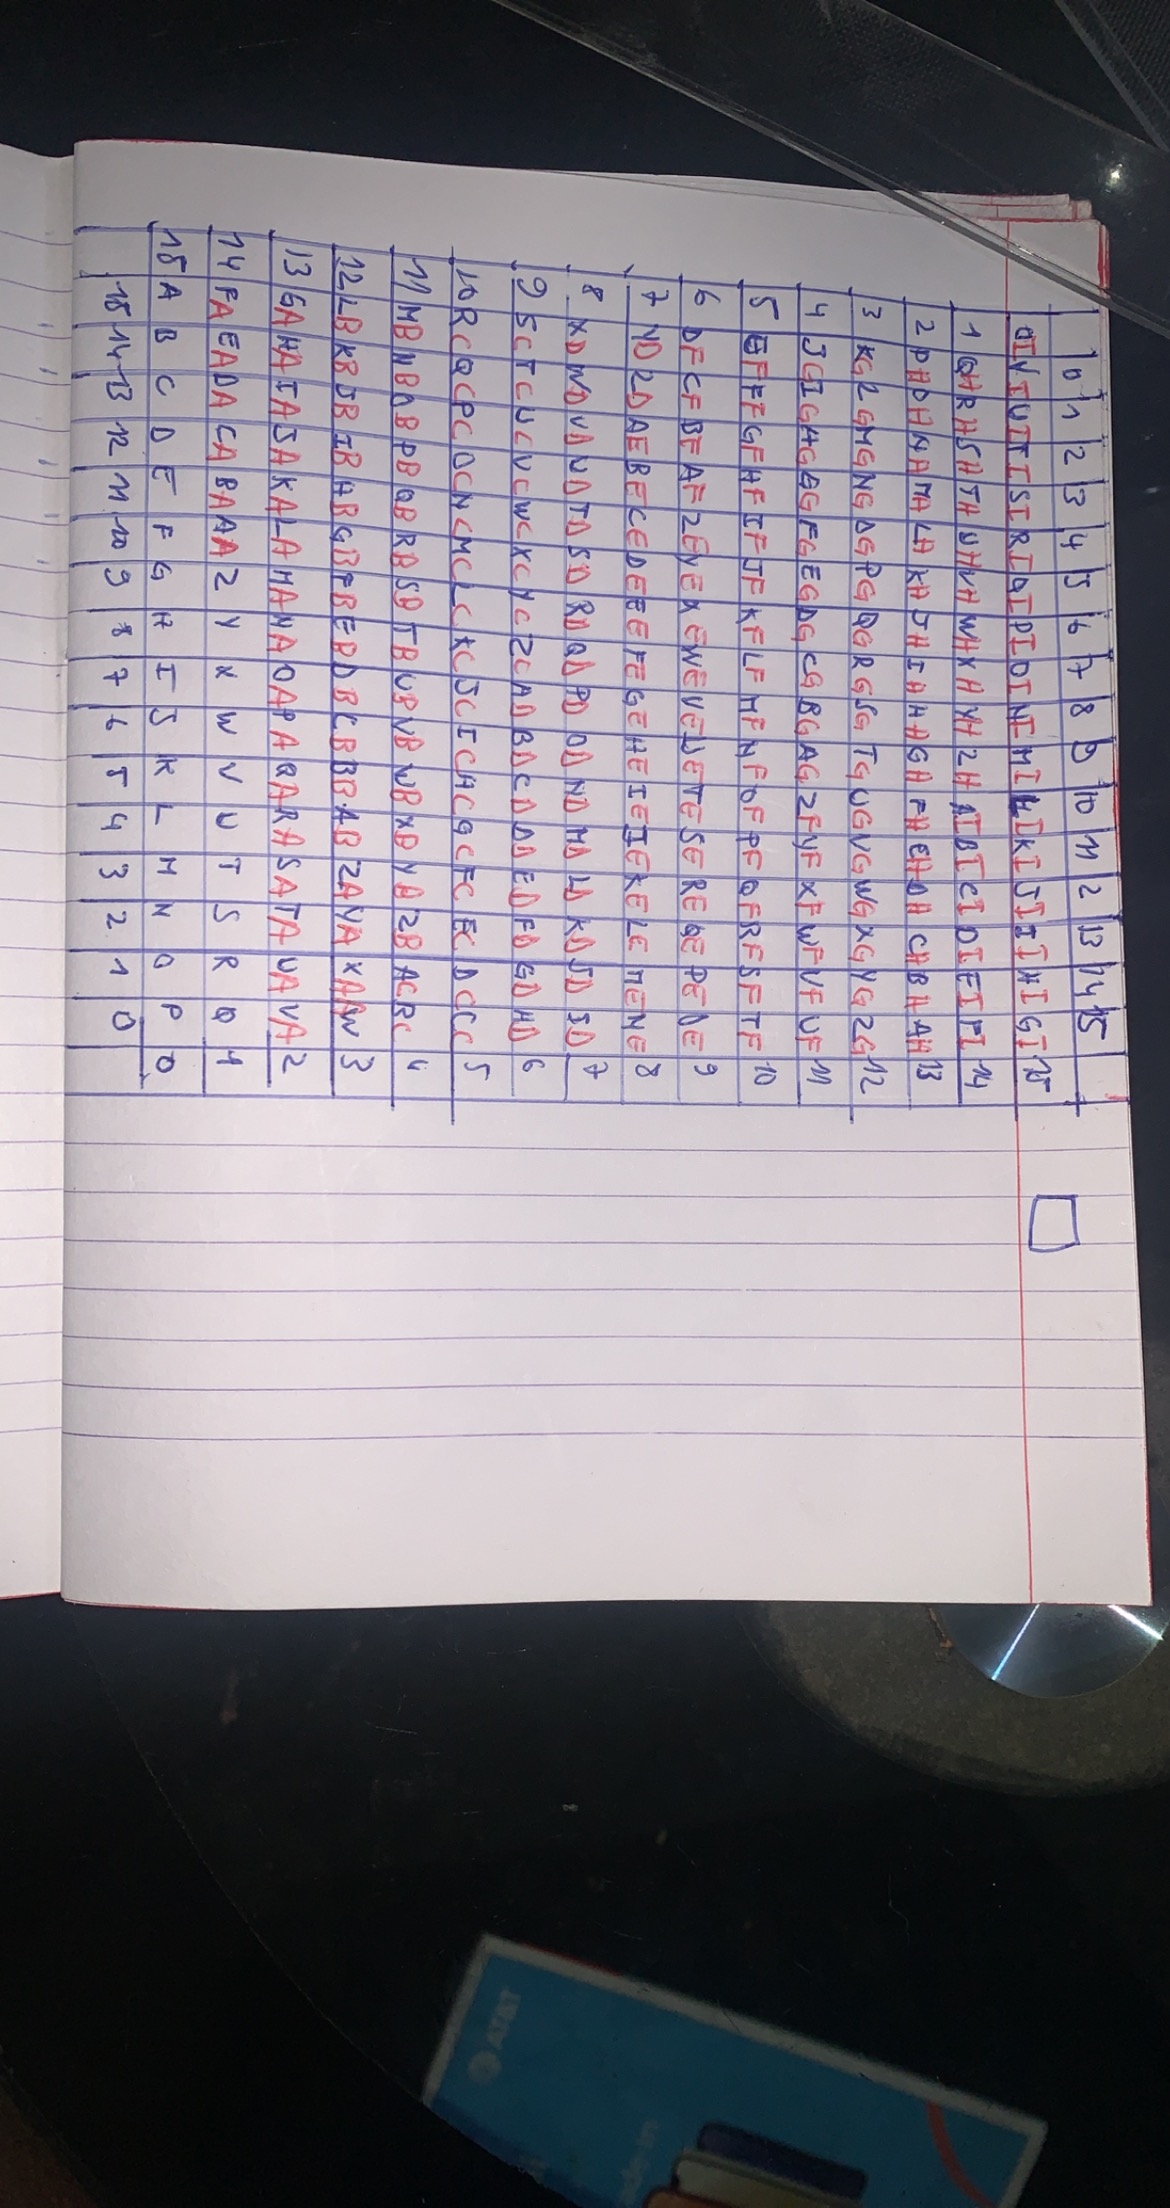 0 1 2 3 4 5 6 7 8 9 10 11 2 13 14 15
0 I VI UI TI SI RI QI PI OI NI MI LI KI JI II HI GI 15
1 QH RH SH TH UH VH WH XH YH ZH AI BI CI DI EI FI 14
2 PH OH NH MH LH KH JH IH HH GH FH EH DH CH BH AH 13
3 KG LG MG NG OG PG QG RG SG TG UG VG WG XG YG ZG 12
4 JG IG HG GG FG EG DG CG BG AG ZF YF XF WF VF UF 11
5 EF FF GF HF IF JF KF LF MF NF OF PF QF RF SF TF 10
6 DF CF BF AF ZE YE XE WE VE UE TE SE RE QE PE OE 9
7 YD ZD AE BE CE DE EE FE GE HE IE JE KE LE ME NE 8
8 XD WD VD UD TD SD RD QD PD OD ND MD LD KD JD ID 7
9 SC TC UC VC WC XC YC ZC AD BD CD DD ED FD GD HD 6
10 RC QC PC OC NC MC LC KC JC IC HC GC FC EC DC CC 5
11 MB NB OB PB QB RB SB TB UB VB WB XB YB ZB AC BC 4
12 LB KB JB IB HB GB FB EB DB CB BB AB ZA YA XA AW 3
13 GA HA IA JA KA LA MA NA OA PA QA RA SA TA UA VA 2
14 FA EA DA CA BA AA Z Y X W V U T S R Q 1
15 A B C D E F G H I J K L M N O P 0
15 14 13 12 11 10 9 8 7 6 5 4 3 2 1 0
AT&T